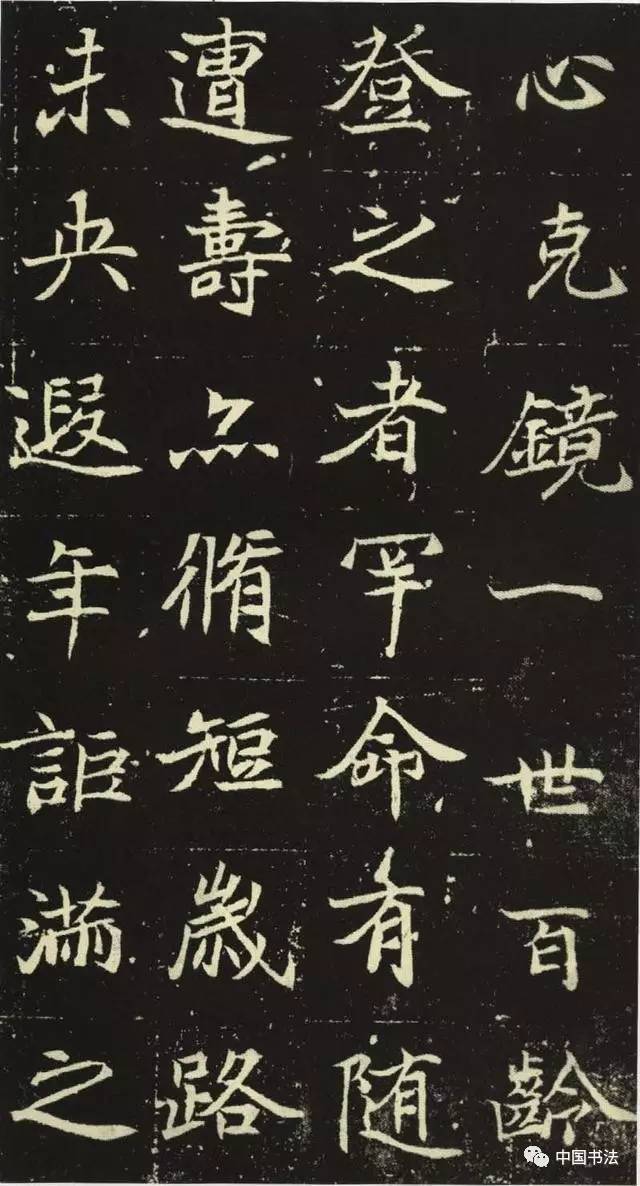 心克鏡一世百齡
登之者罕命有随
遭壽亦脩短歲路
未央遐年詎滿之
中国书法